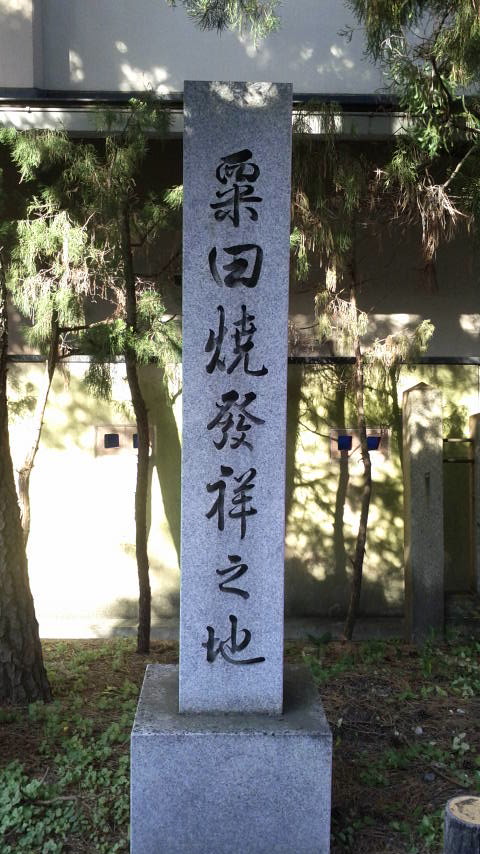 粟田焼發祥之地